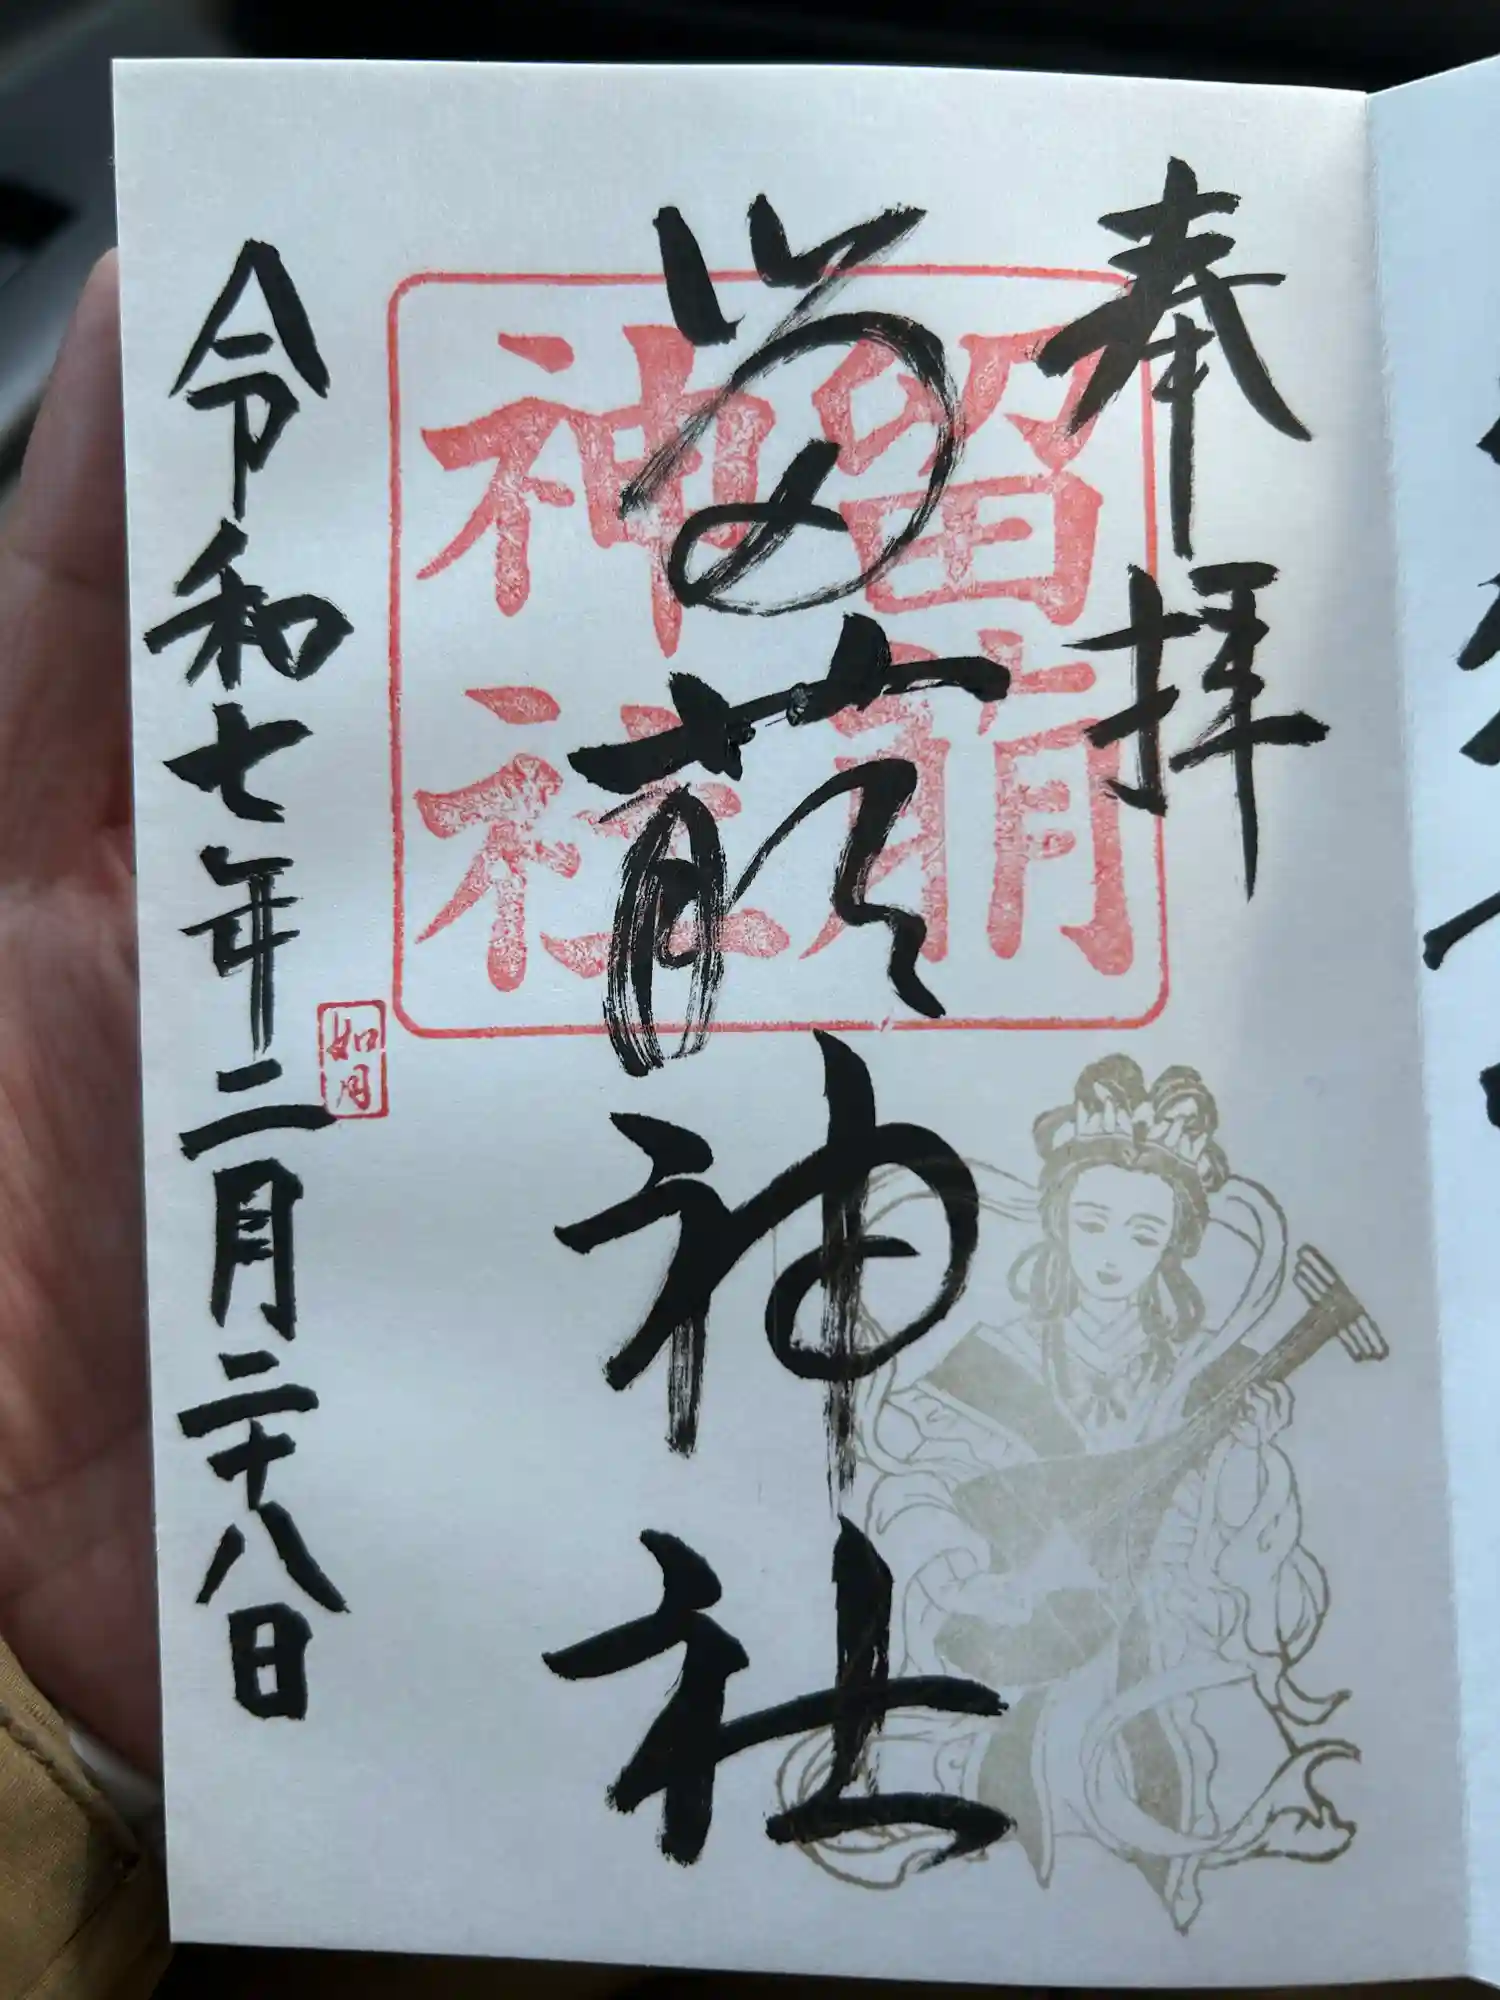 奉拝
留萌神社
留萌
神社
令和七年二月二十八日
如月